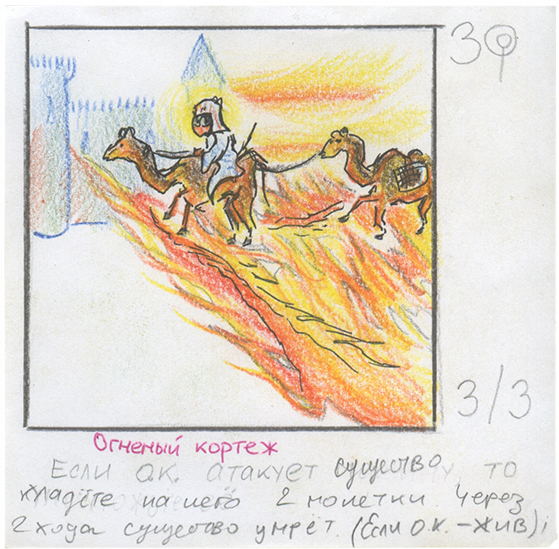 3
3/3
Огненый кортеж
Если о.к. атакует существо, то
кладёте на него 2 монетки. Через
2 хода существо умрёт. (Если о.к. - жив)